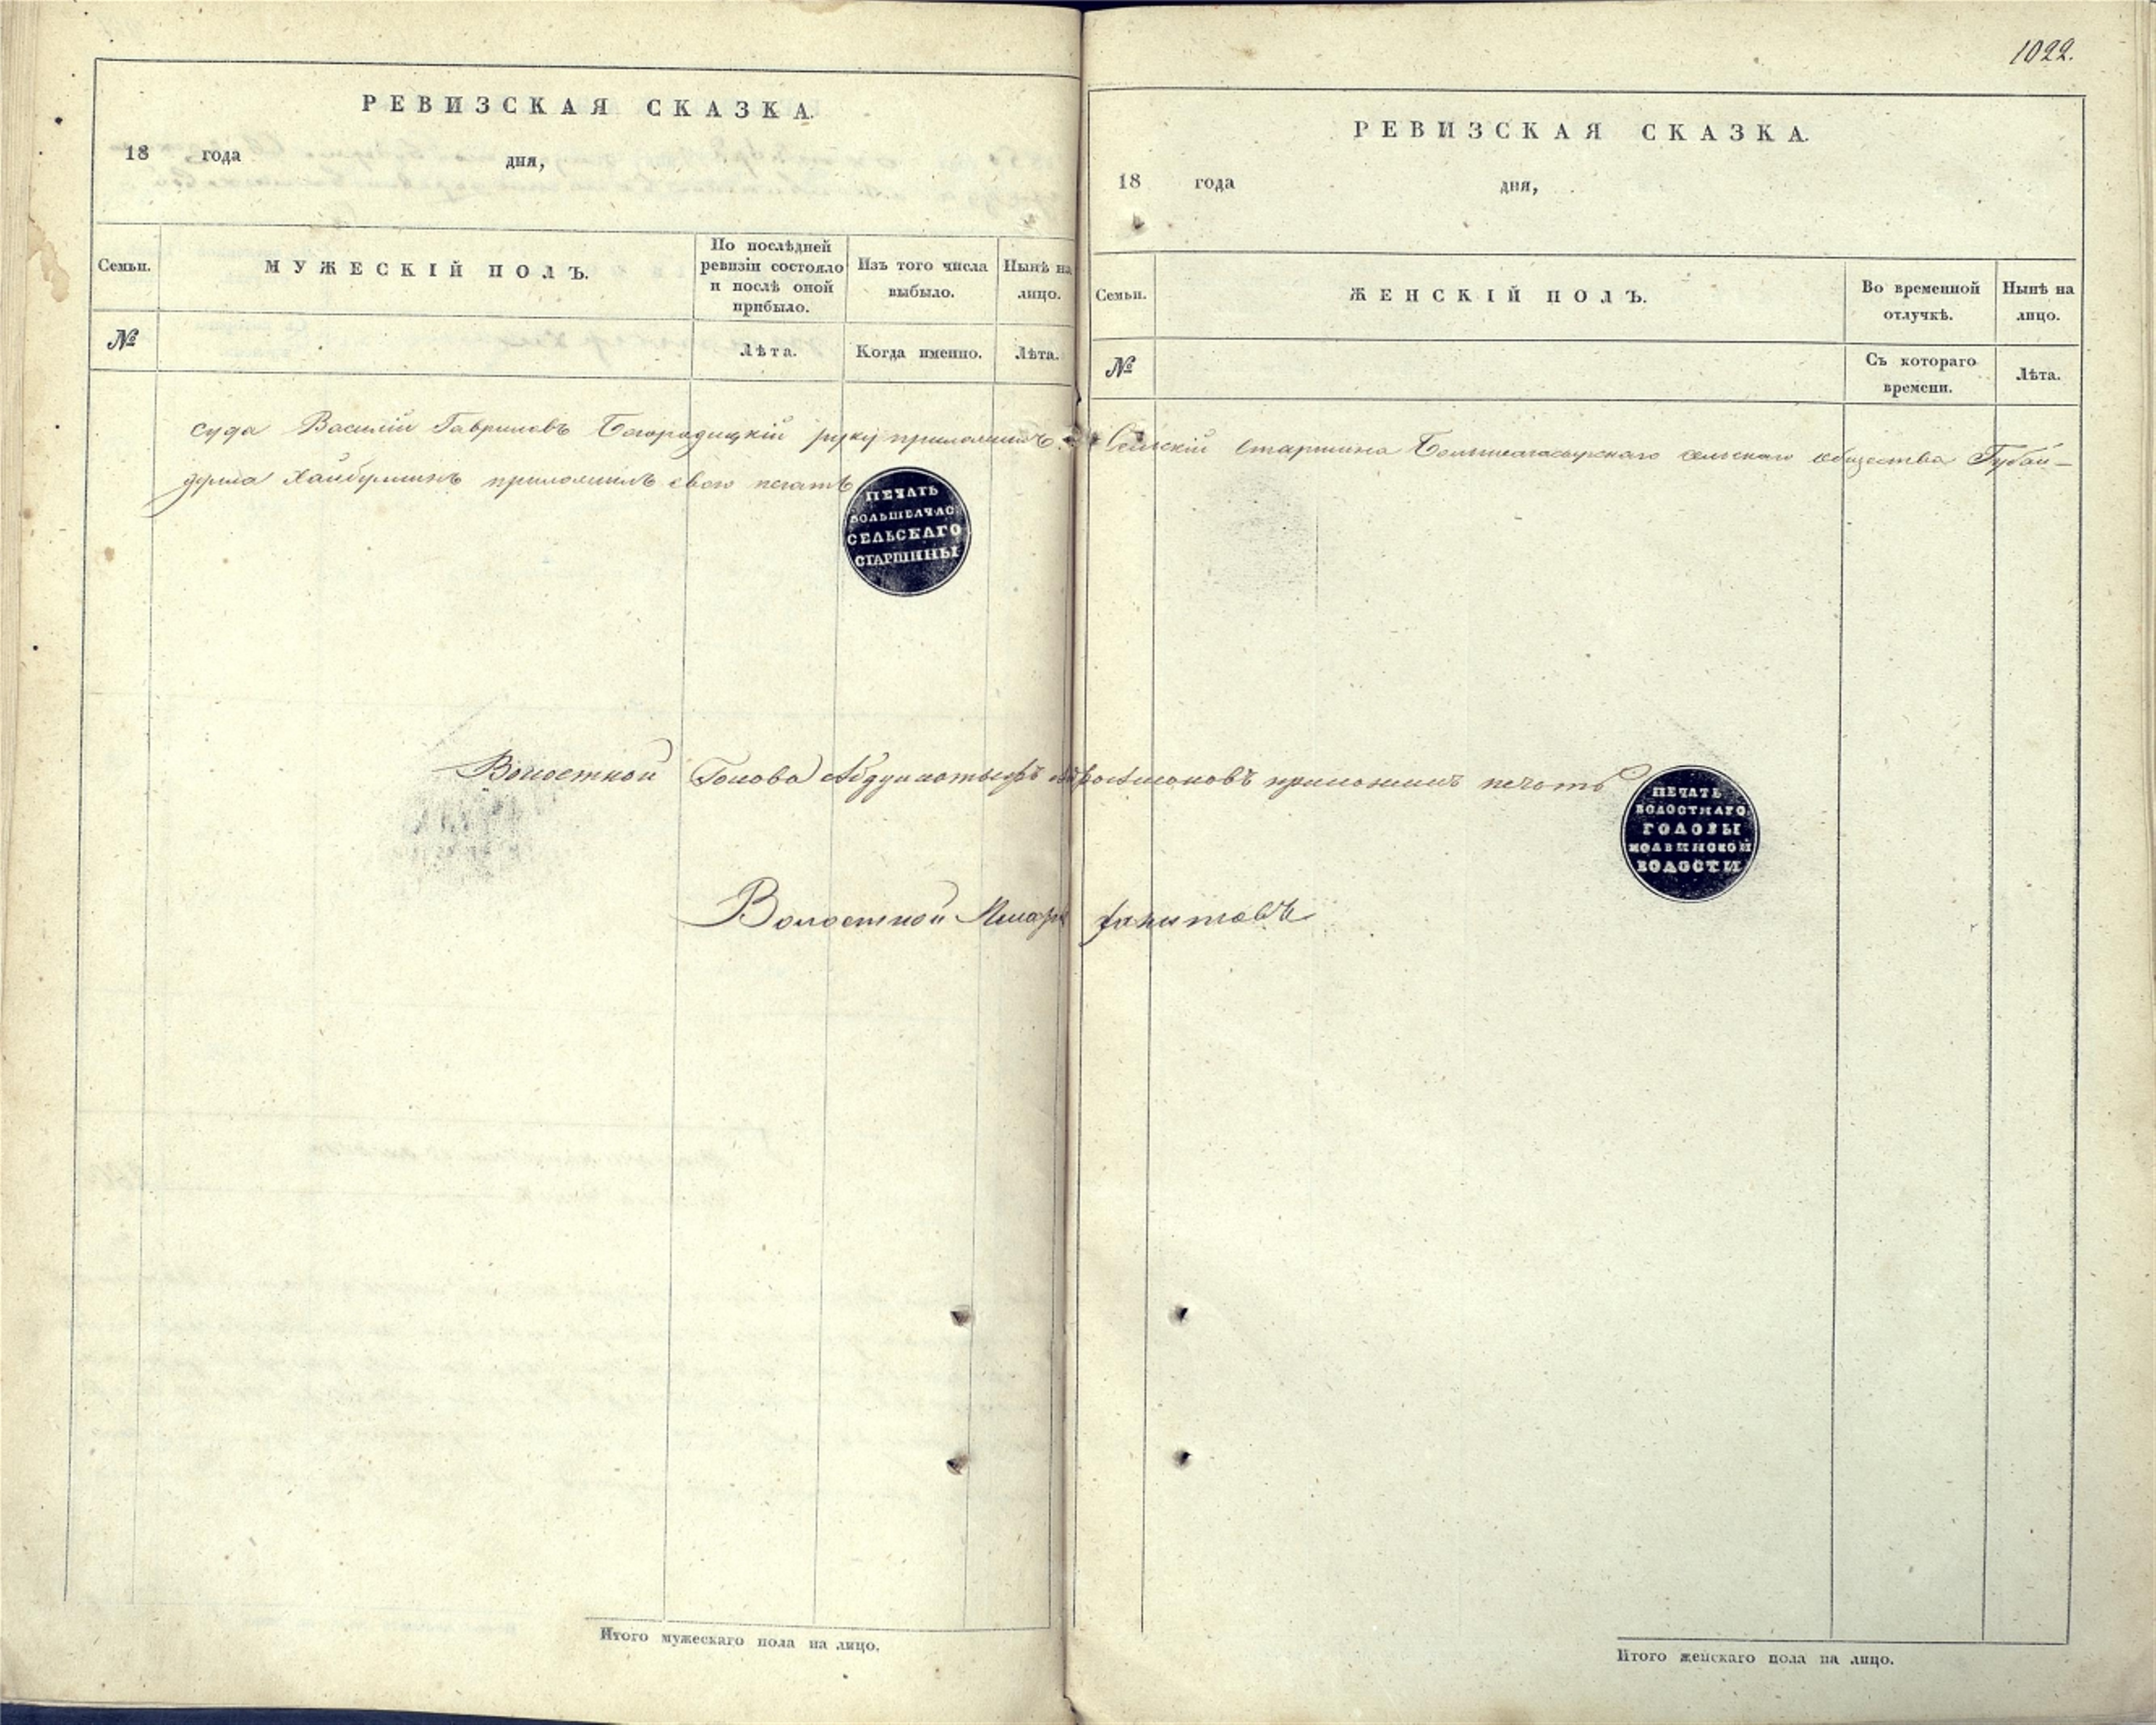 1022.
РЕВИЗСКАЯ СКАЗКА.
18 года дня,
Семьи.
МУЖЕСКІЙ ПОЛЪ.
По послѣдней ревизіи состояло и послѣ оной прибыло.
Изъ того числа выбыло.
Нынѣ на лицо.
№
Лѣта.
Когда именно.
Лѣта.
РЕВИЗСКАЯ СКАЗКА.
18 года дня,
Семьи.
ЖЕНСКІЙ ПОЛЪ.
Во временной отлучкѣ.
Нынѣ на лицо.
№
Съ котораго времени.
Лѣта.
суда Василій Гавриловъ Богородицкій руку приложилъ. Сельскій старшина сельскаго общества Губай-
дулла Хайбуллинъ приложилъ свою печать
ПЕЧАТЬ
БОЛЬШЕАЧАС
СЕЛЬСКАГО
СТАРШИНЫ
Волостной Голова приложилъ печать
ПЕЧАТЬ
ВОЛОСТНАГО
ГОЛОВЫ
ВОЛОСТИ
Волостной Писарь
Итого мужескаго пола на лицо.
Итого женскаго пола на лицо.